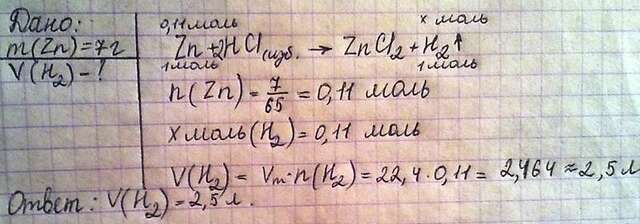 Дано:
m(Zn)=7г
V(H₂)-?
0,11моль х моль
Zn+2HCl(изб.) → ZnCl₂+H₂↑
1моль 1моль
n(Zn)=7/65=0,11 моль
х моль(H₂)=0,11 моль
V(H₂)= Vm·n(H₂)=22,4·0,11= 2,464 ≈2,5 л
Ответ: V(H₂)=2,5 л.